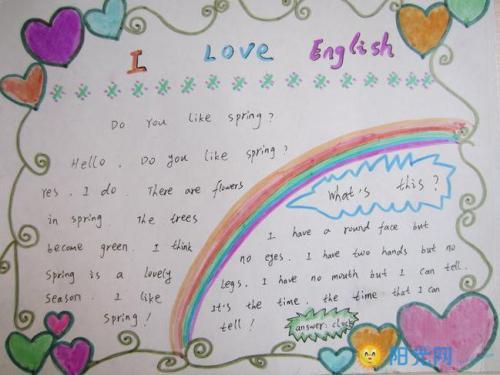 I LOVE English
Do You like spring?
Hello. Do you like spring?
Yes. I do. There are flowers
in spring. The trees
become green. I think
Spring is a lovely
Season. I like
Spring!
What's this?
I have a round face but
no eyes. I have two hands but no
legs. I have no mouth but I can tell.
It's the time. the time that I can
tell!
answer: clock
阳光网